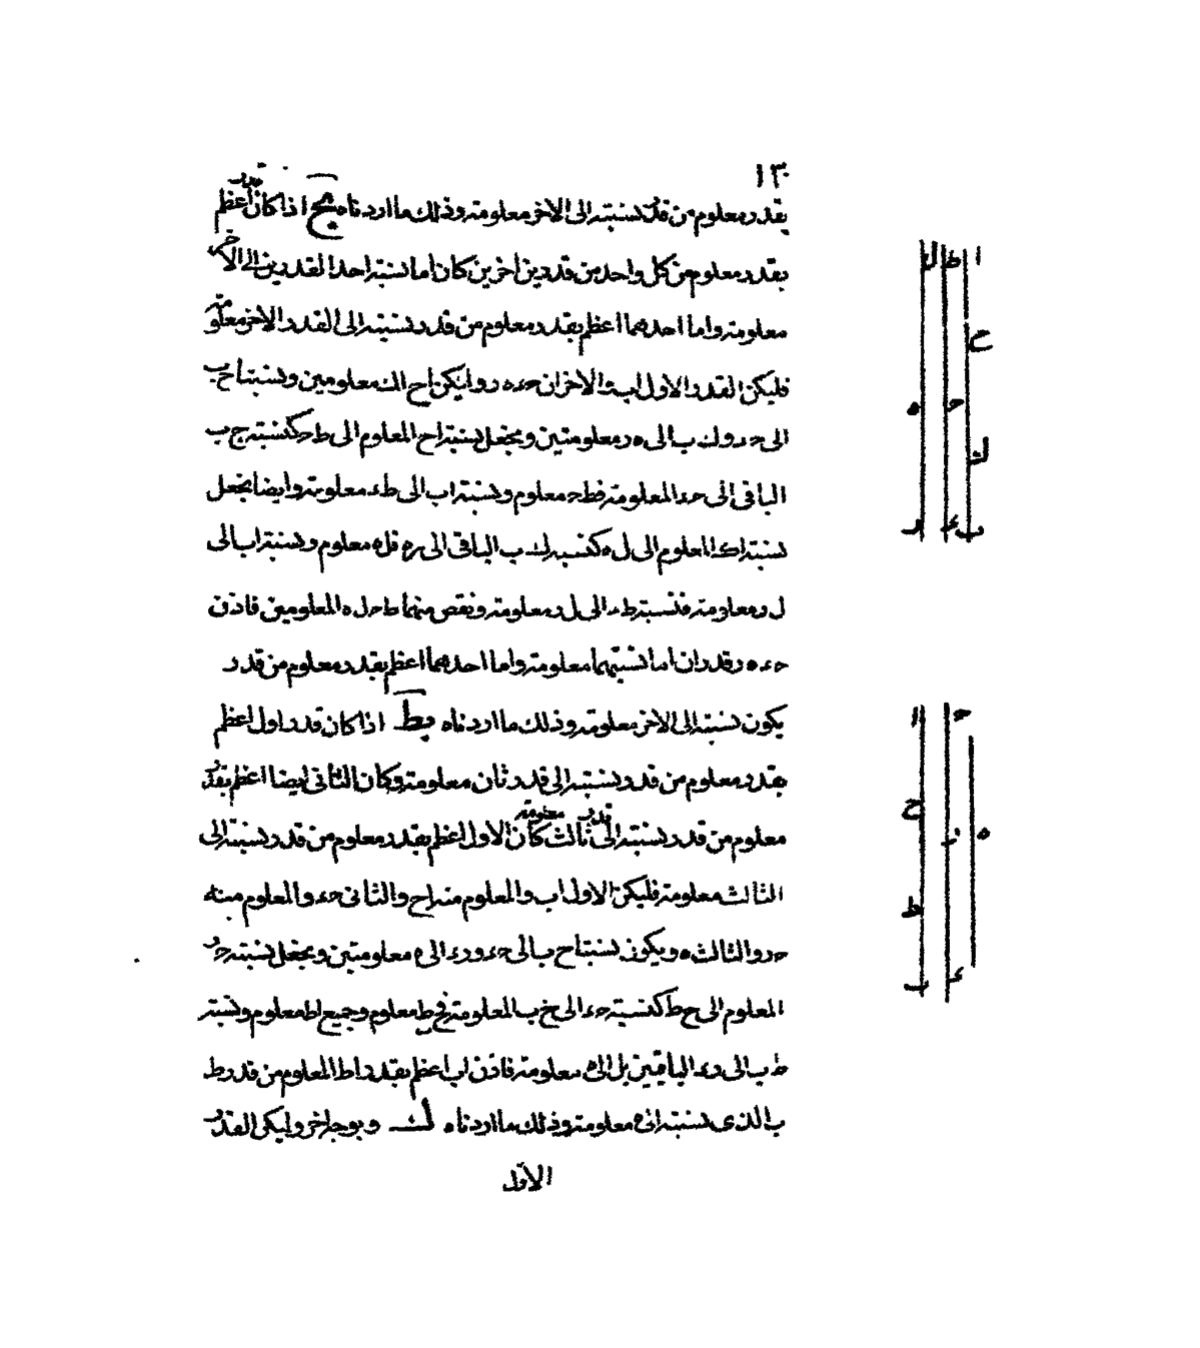 ١٣
بقدر معلوم من قدر نسبته الى الاخر معلومة وذلك ما اردناه يح اذا كان قدر اعظم
بقدر معلوم من كل واحد من قدرين اخرين كان اما نسبة احد القدرين الى الاخر
معلومة واما احدهما اعظم بقدر معلوم من قدر نسبته الى القدر الاخر معلومة
فليكن القدر الاول اب والاخران حء ه ر وليكن اح اك معلومين ونسبتا ح ب
الى حء و ك ب الى ه ر معلومتين ونجعل نسبة اح المعلوم الى ط ح كنسبة ح ب
الباقى الى حء المعلومة فط ح معلوم ونسبة اب الى طء معلومة وايضا نجعل
نسبة اك المعلوم الى ل ه كنسبة ك ب الباقى الى ه ر فل ه معلوم ونسبة اب الى
ل ر معلومة فنسبة طء الى ل ر معلومة ونقص منهما ط ح ل ه المعلومين فاذن
حء ه ر قدران اما نسبتهما معلومة واما احدهما اعظم بقدر معلوم من قدر
يكون نسبته الى الاخر معلومة وذلك ما اردناه يط اذا كان قدر اول اعظم
بقدر معلوم من قدر نسبته الى قدر ثان معلومة وكان الثانى ايضا اعظم بقدر
معلوم من قدر نسبته الى قدر ثالث معلومة كان الاول اعظم بقدر معلوم من قدر نسبته الى
الثالث معلومة فليكن الاول اب والمعلوم منه اح والثانى حء والمعلوم منه
حر والثالث ه ويكون نسبتا ح ب الى حء و رء الى ه معلومتين ونجعل نسبة حر
المعلوم الى ح ط كنسبة حء الى ح ب المعلومة فح ط معلوم وجميع اط معلوم ونسبة
ط ب الى رء الباقيين بل الى ه معلومة فاذن اب اعظم بقدر اط المعلوم من قدر ط
ب الذى نسبته الى ه معلومة وذلك ما اردناه ك وبوجه اخر وليكن القدر
الاول
ا ط ل
ح
ح ه
ك
ب ء ر
ح ا
ح
ه ر
ط
ء ب